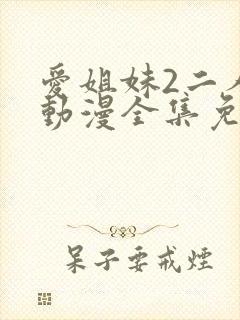 愛姐妹2二
動漫全集免
呆子要戒煙